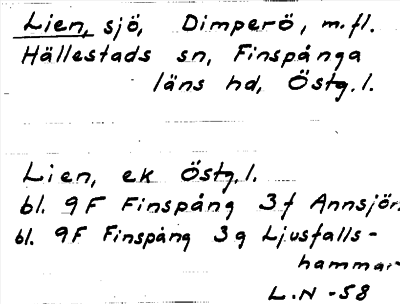 Lien, sjö, Dimperö, m.fl.
Hällestads sn, Finspånga
läns hd, Östg.l.
Lien, ek Östg.l.
bl. 9F Finspång 3f Annsjön
bl. 9F Finspång 3g Ljusfalls-
hammar
L.N -58